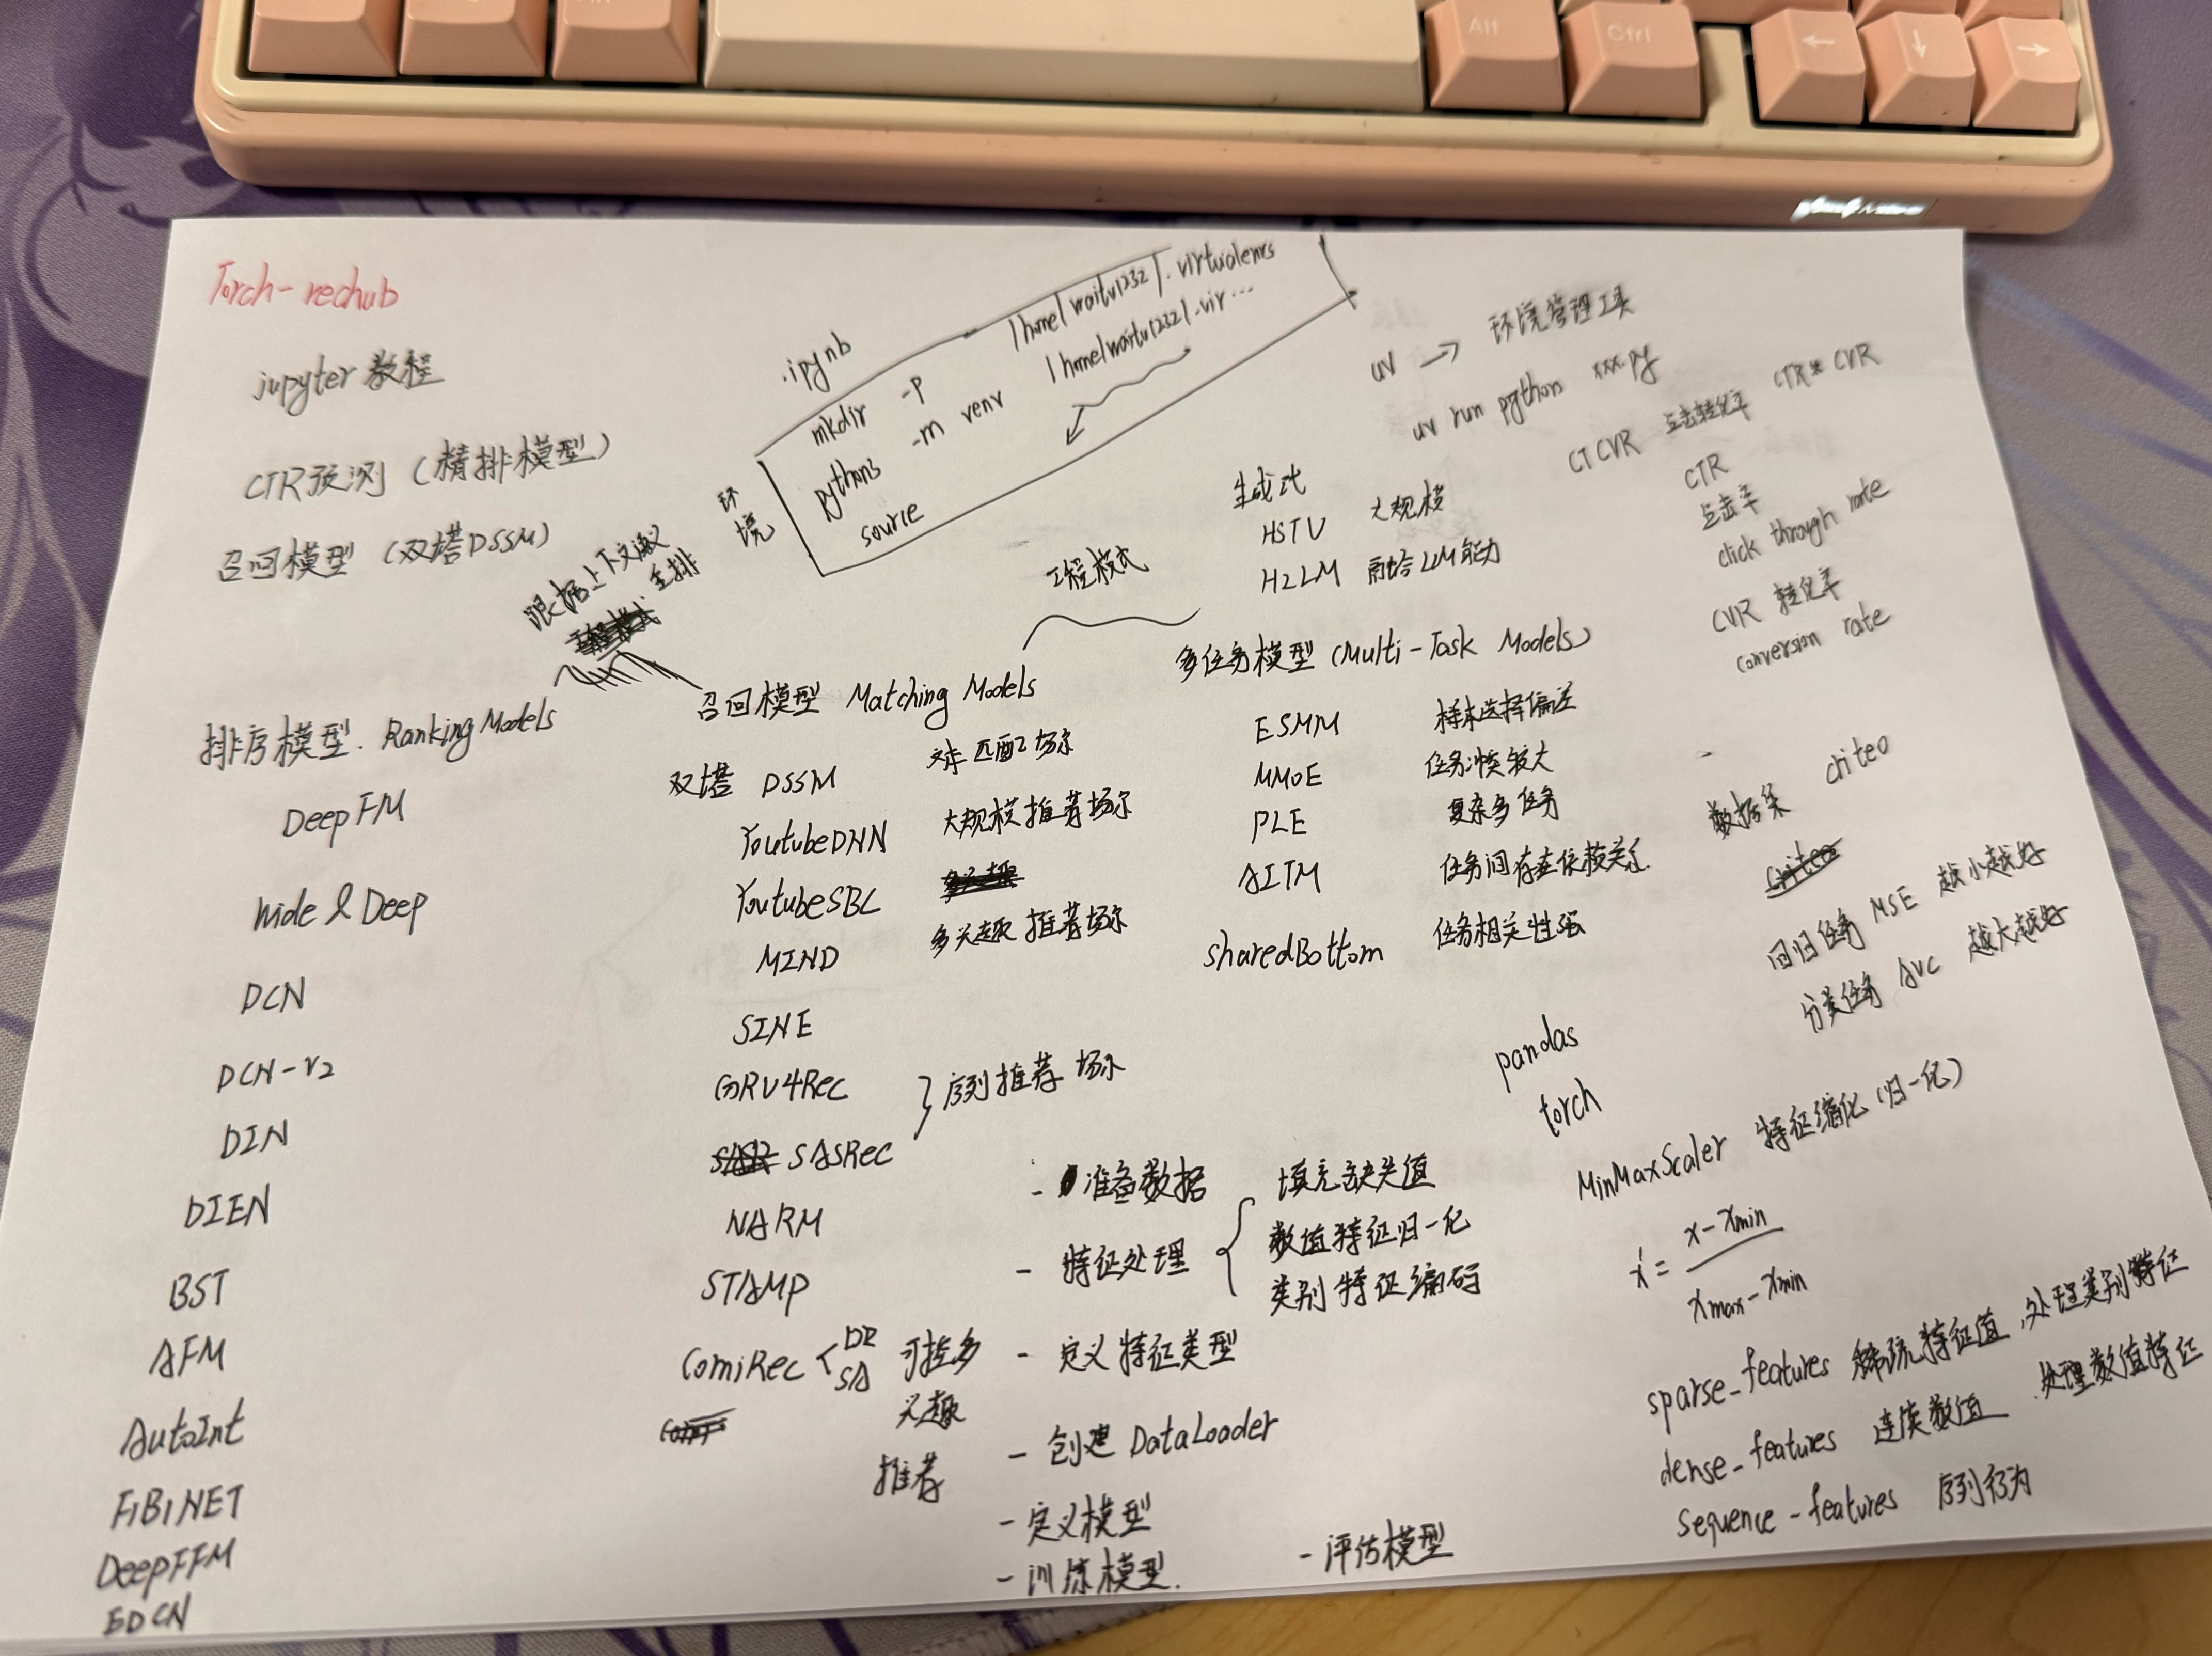 Alt
Ctrl
←
↓
→
Torch-rechub
jupyter 教程
CTR预测 (精排模型)
召回模型 (双塔DSSM)
.ipynb
环境
mkdir -p /home/waitu1232/.virtualenvs
pythons -m venv /home/waitu1232/.vir...
source
uv → 环境管理工具
uv run python xxx.py
CTCVR 点击转化率 CTR * CVR
CTR
点击率
click through rate
CVR 转化率
conversion rate
生成式
HSTU 大规模
HLLM 融合LLM能力
工程模式
根据上下文语义
重排
排序模型. Ranking Models
DeepFM
Wide & Deep
DCN
DCN-v2
DIN
DIEN
BST
AFM
AutoInt
FiBiNET
DeepFFM
EDCN
召回模型 Matching Models
双塔 DSSM 文本匹配场景
YoutubeDNN 大规模推荐场景
YoutubeSBC
MIND 多兴趣推荐场景
SINE
GRU4Rec } 序列推荐场景
SASRec
NARM
STAMP
ComiRec < DR
SA
可控多
兴趣
推荐
多任务模型 (Multi-Task Models)
ESMM 样本选择偏差
MMoE 任务冲突较大
PLE 复杂多任务
AITM 任务间存在依赖关系
sharedBottom 任务相关性强
数据集 criteo
回归任务 MSE 越小越好
分类任务 AUC 越大越好
pandas
torch
MinMaxScaler 特征缩化 (归一化)
x' = (x - xmin) / (xmax - xmin)
- 准备数据
- 特征处理 { 填充缺失值
数值特征归一化
类别特征编码
- 定义特征类型
- 创建 DataLoader
- 定义模型
- 训练模型.
- 评估模型
sparse_features 稀疏特征值, 处理类别特征
dense_features 连续数值. 处理数值特征
sequence-features 序列行为